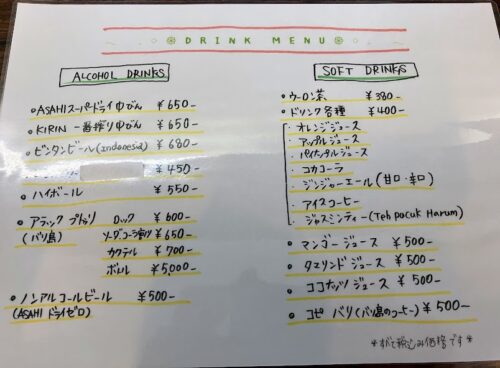 DRINK MENU
ALCOHOL DRINKS
・ASAHIスーパードライ中びん ¥650-
・KIRIN 一番搾り中びん ¥650-
・ビンタンビール(Indonesia) ¥680
¥450-
・ハイボール ¥550-
・アラック ロック ¥600-
(バリ島) ソーダ・コーラ割り ¥650
カクテル ¥700-
ボトル ¥5,000-
・ノンアルコールビール ¥500-
(ASAHI ドライゼロ)
SOFT DRINKS
・ウーロン茶 ¥380-
・ドリンク各種 ¥400-
・オレンジジュース
・アップルジュース
・パイナップルジュース
・コカコーラ
・ジンジャーエール(甘口・辛口)
・アイスコーヒー
・ジャスミンティー(Teh pucuk Harum)
・マンゴージュース ¥500-
・タマリンドジュース ¥500-
・ココナッツジュース ¥500-
・コピ バリ(バリ島のコーヒー) ¥500-
*すべて税込み価格です*